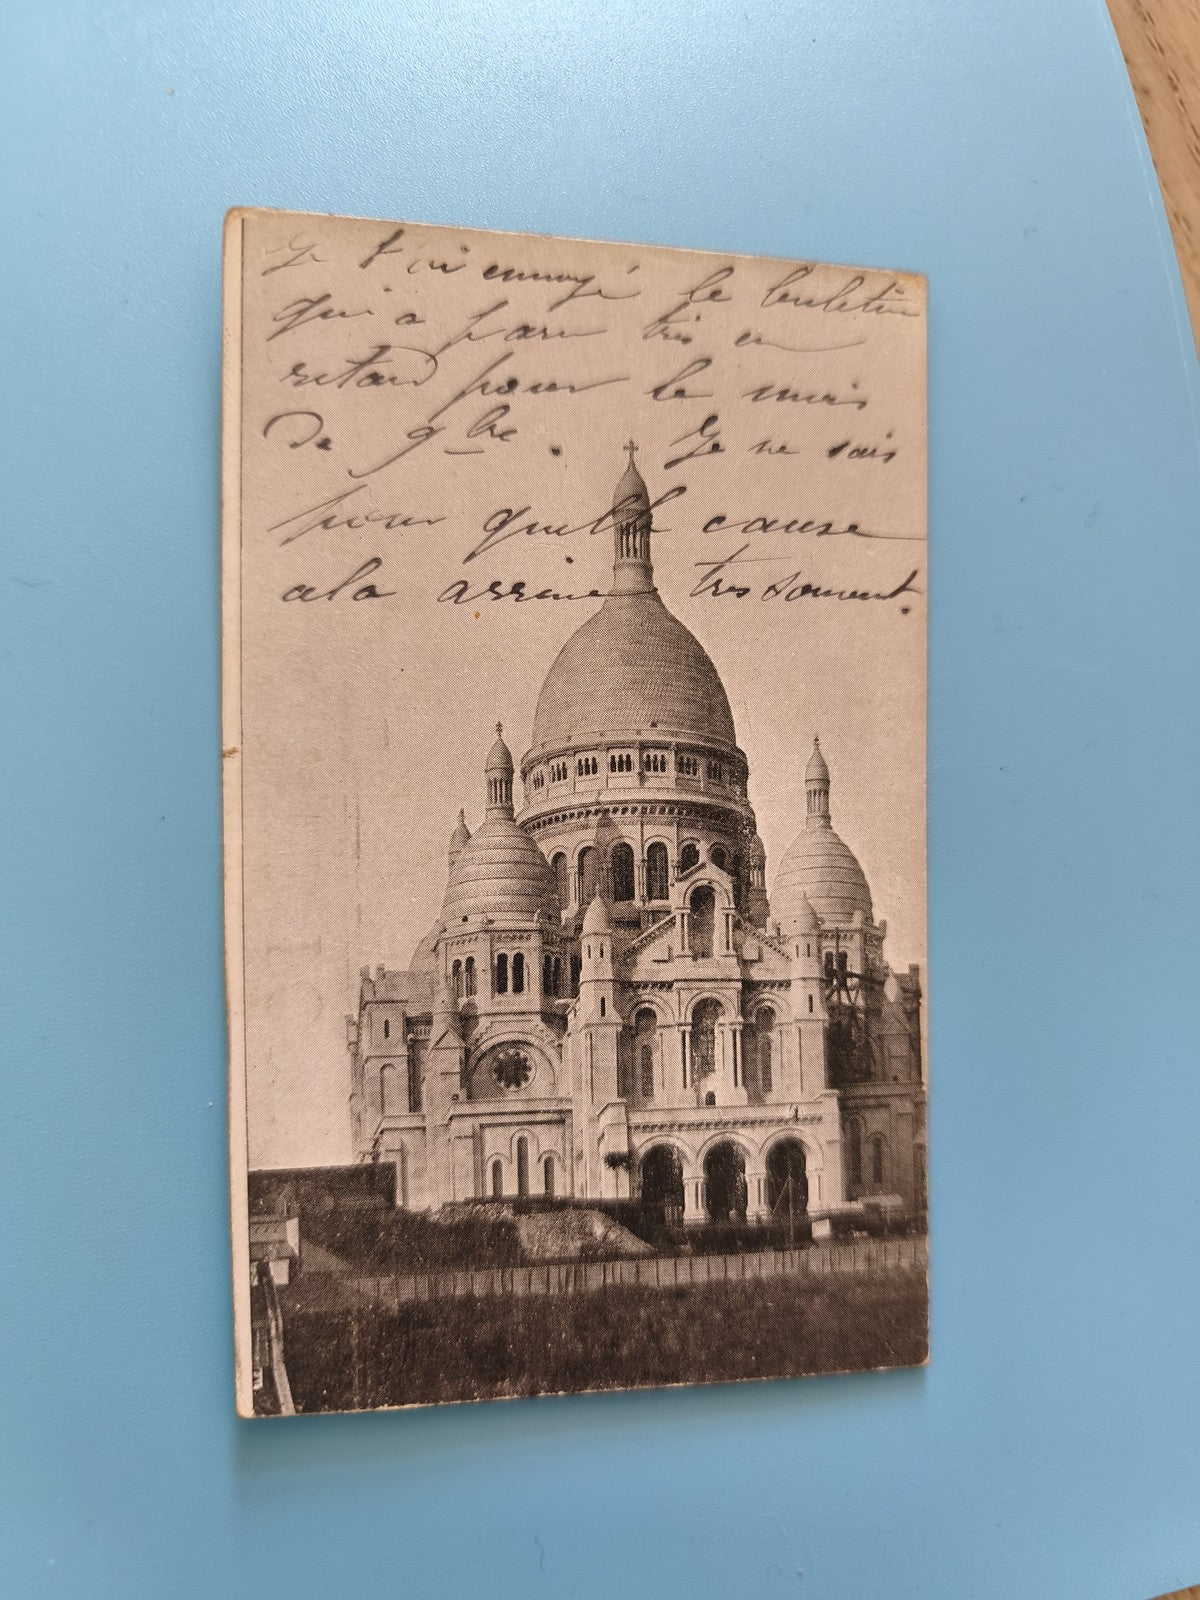 Je t'ai envoyé le buletin
qui a paru très en
retard pour le mois
De 9bre. Je ne sais
pour quelle cause
cela arrive tres souvent.